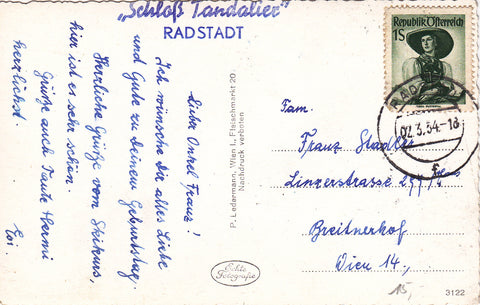 „Schloß Tandalier"
RADSTADT
Lieber Onkel Franz!
Ich wünsche dir alles Liebe
und Gute zu deinem Geburtstag.
Herrliche Grüße vom Skikurs,
hier ist es sehr schön.
Grüße auch Tante Hermi
herzlichst.
Evi
P. Ledermann, Wien I., Fleischmarkt 20
Nachdruck verboten
Echte
Fotografie
Republik Österreich
1S
RADSTADT
02.3.54.-18
Fam.
Franz Stadler
Linzerstrasse
Breitnerhof
Wien 14.,
15,
3122